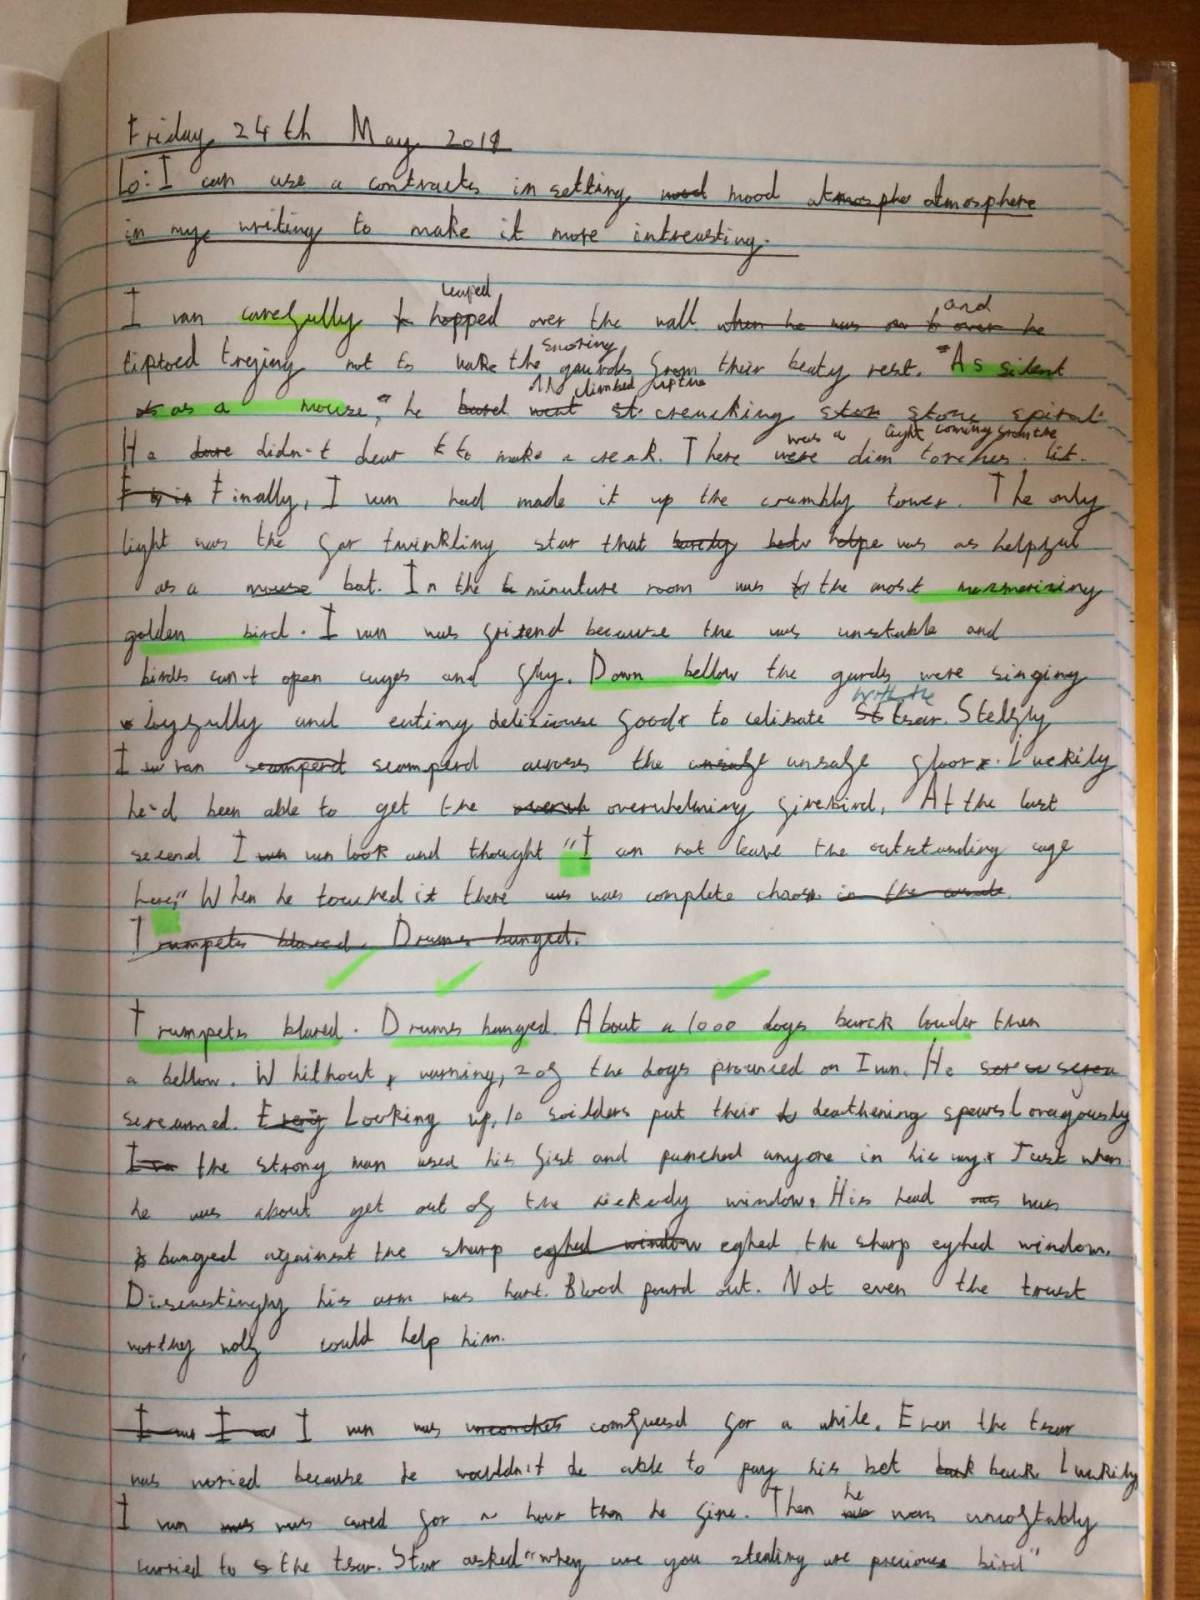 Friday 24th May 2019
Lo: I can use a contracts in setting mood mood atmosphe atmosphere
in my writing to make it more intreasting.
leaped and
I van carefully hopped over the wall when he was over he
snoring
tiptoed trying not to wake the gaurds from their beaty rest. "As silent
climbed up the
as a mouse," he went creacking stone spiral
was a light coming from the
He dare didn't dear to make a creak. There were dim torches lit.
Finally, I van had made it up the crumbly tower. The only
light was the far twinkling star that barely helpe was as helpful
as a mouse bat. In the minuture room was the most mezmerizing
golden bird. I van was fritend because the was unstable and
birds can't open cages and fly. Down bellow the gards were singing
with the
joyfully and eating deliziouse food to celibate tsar. Stelfly
I van scamperd scamperd across the unsafe unsafe floor. Luckily
he'd been able to get the overwhelming firebird. At the last
second I van look and thought "I can not leave the outstanding cage
here," When he touched it there was was complete chaos in the
Trumpets blared. Drumes banged.
Trumpets blared. Drumes banged. About a 1000 dogs barck louder then
a bellow. Whithout warning, 2 of the dogs prounced on I van. He
screamed. Looking up, 10 soilders put their deathening spears
the strong man used his fist and punched anyone in his way. Just when
he was about get out of the rickedy window. His head was was
banged against the sharp eghed window eghed the sharp eghed window.
Discustingly his arm was hurt. Blood pourd out. Not even the trust
worthy wolf could help him.
I van I van I van was confuesd for a while. Even the tsar
was woried because he wouldn't be able to pay his bet back back Luckily
he
I van was was cared for a hour then he fine. Then was was
carried to the tsar. Star asked "why are you stealing are preciouse bird"